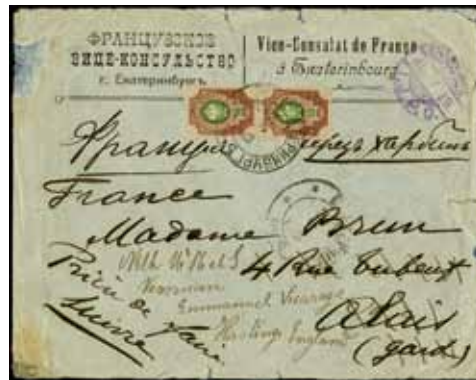 ФРАНЦУЗСКОЕ
ВИЦЕ-КОНСУЛЬСТВО
г. Екатеринбургъ.
Vice-Consulat de France
à Ekaterinbourg
Франція
черезъ Харбинъ
France
Madame Brun
4 Rue
Alais
(gard)
Prière de faire
suivre
Emmanuel Vicarage
Hastings England